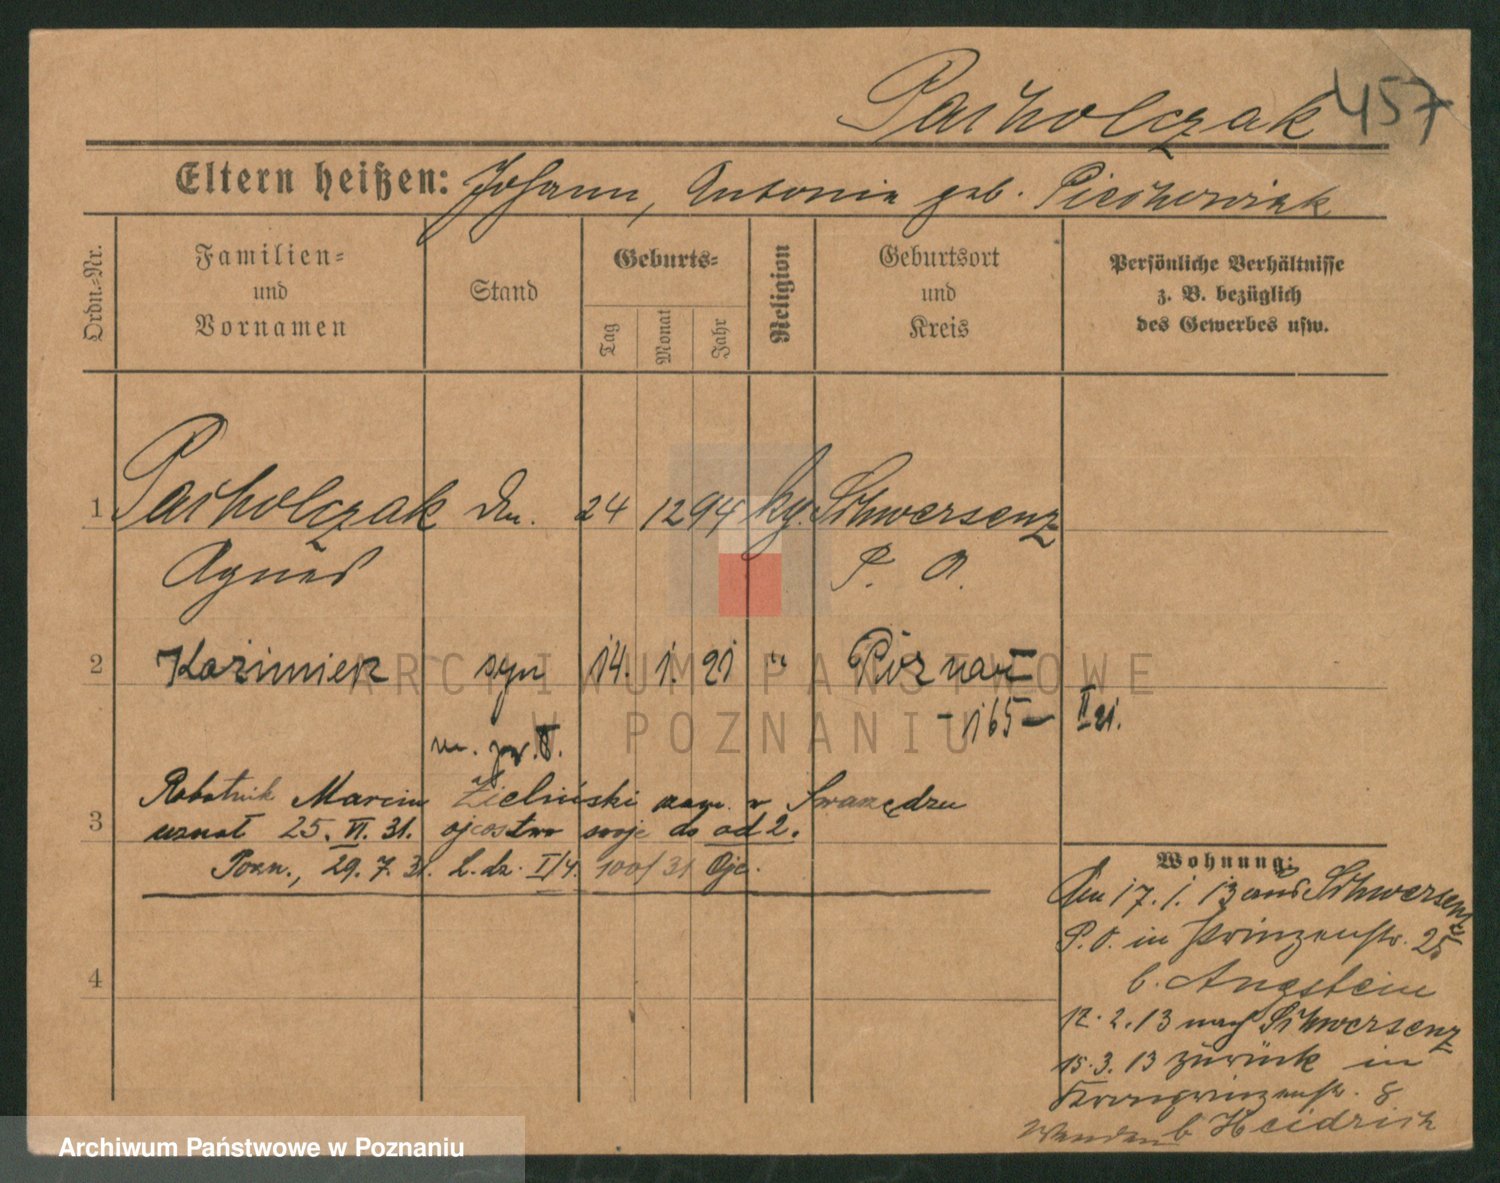 Pacholczak 457
Eltern heißen: Johann, Antonie geb. Piechowiak
Ordn.-Nr.
Familien-
und
Vornamen
Stand
Geburts-
Tag
Monat
Jahr
Religion
Geburtsort
und
Kreis
Persönliche Verhältnisse
z. B. bezüglich
des Gewerbes usw.
1 Pacholczak 24 12 94 kg. Schwersenz
Agnes P. O.
2 Kazimierz syn 14. 1. 21 " Poznań
-165- II 21.
Robotnik Marcin Zieliński zam. w Swarzędzu
3 uznał 25. VI. 31. ojcostwo swoje do od 2.
Pozn., 29. 7. 31. L. dz. I/4. 1001/31
Wohnung:
Den 17. 1. 13 aus Schwersenz
P. O. in Prinzenstr. 25
b. Angstein
4
12. 2. 13 nach Schwersenz
15. 3. 13 zurück in
Kronprinzenstr. 8
b Heidrich
ARCHIWUM PAŃSTWOWE
W POZNANIU
Archiwum Państwowe w Poznaniu